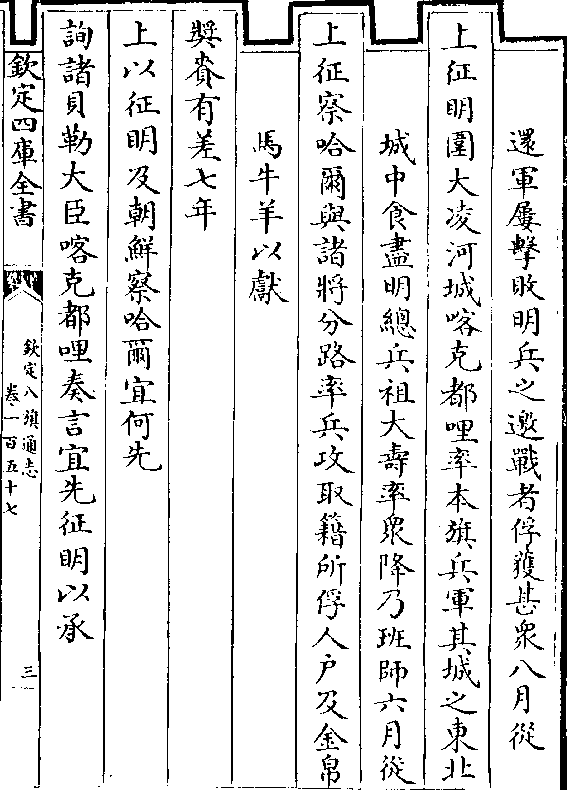 還軍屢擊敗明兵之邀戰者俘獲甚衆八月從
上征明圍大凌河城喀克都哩率本旗兵軍其城之東北
城中食盡明總兵祖大壽率衆降乃班師六月從
上征察哈爾與諸將分路率兵攻取籍所俘人户及金帛
馬牛羊以獻
奬賚有差七年
上以征明及朝鮮察哈爾宜何先
詢諸貝勒大臣喀克都哩奏言宜先征明以承
欽定四庫全書
欽定八旗通志
卷一百五十七
三